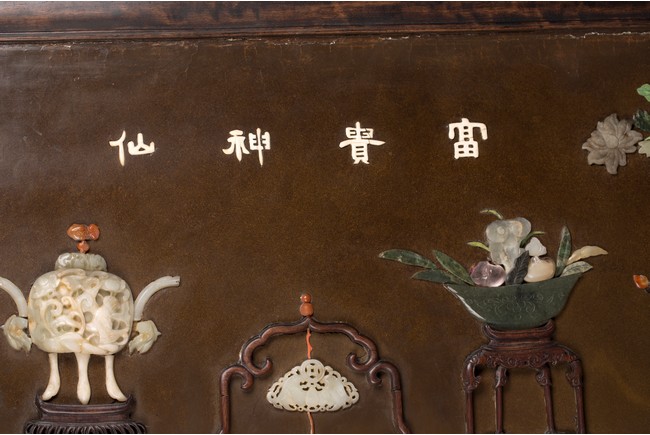 富貴神仙